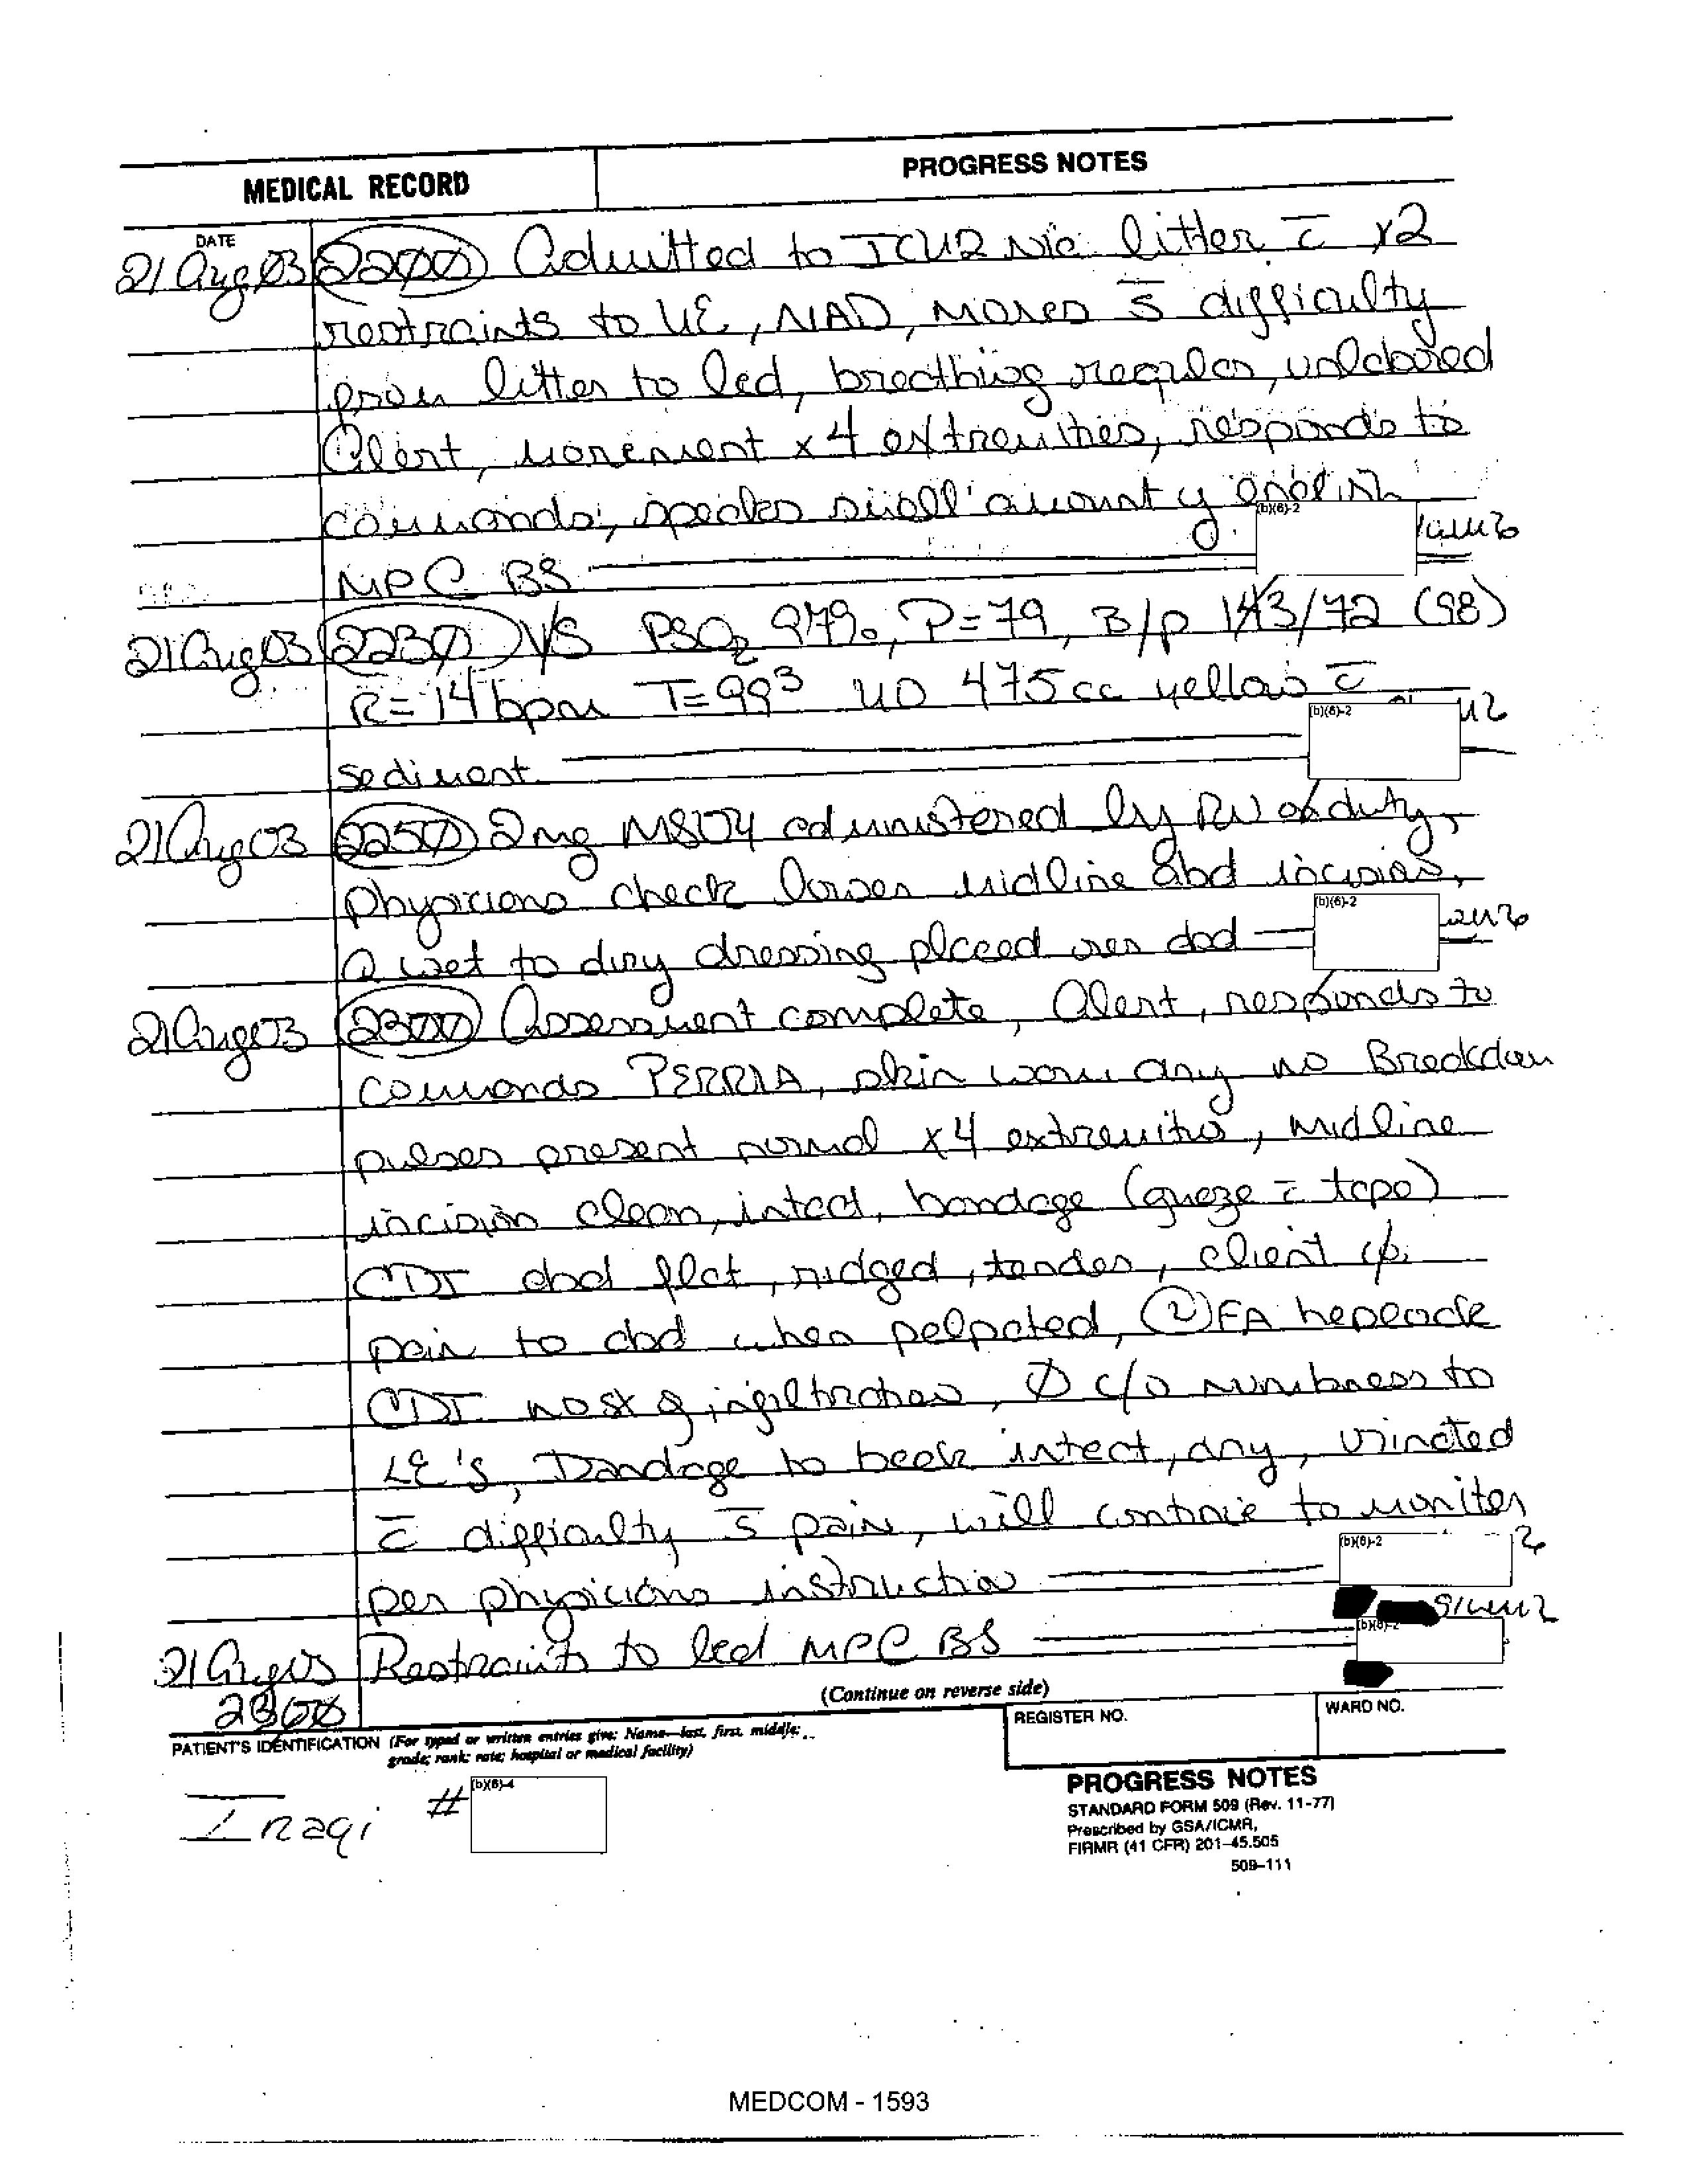 MEDICAL RECORD
PROGRESS NOTES
DATE
21 Aug 03 2200 Admitted to ICU2 via litter c̄ x2
restraints to UE, NAD, moves s̄ difficulty
from litter to bed, breathing regular, unlabored
Alert, movement x 4 extremities, responds to
commands, speaks small amount of english
(b)(6)-2
MPC BS
21 Aug 03 2230 VS PSO2 97%, P=79, B/p 143/72 (98)
R= 14 bpm T=99³ UO 475cc yellow c̄
(b)(6)-2
sediment
21 Aug 03 2250 2mg MSO4 administered by RN on duty,
physicians check lower midline abd incision,
(b)(6)-2
a wet to dry dressing placed over abd
21 Aug 03 2300 Assessment complete, Alert, responds to
commands PERRLA, skin warm dry no Breakdown
pulses present normal x4 extremities, midline
incision clean, intact, bandage (guaze c̄ tape)
CDI abd flat, ridged, tender, client c/o
pain to abd when palpated, FA heplock
CDI no s/s of infiltration, Ø c/o numbness to
LE's, Bandage to back intact, dry, urinated
c̄ difficulty s̄ pain, will continue to moniter
(b)(6)-2
per physicians instruction
(b)(6)-2
21 Aug 03 Restraints to bed MPC BS
2300
(Continue on reverse side)
PATIENT'S IDENTIFICATION (For typed or written entries give: Name—last, first, middle;
grade; rank; rate; hospital or medical facility)
REGISTER NO.
WARD NO.
Iraqi # (b)(6)-4
PROGRESS NOTES
STANDARD FORM 509 (Rev. 11-77)
Prescribed by GSA/ICMR,
FIRMR (41 CFR) 201-45.505
509-111
MEDCOM - 1593